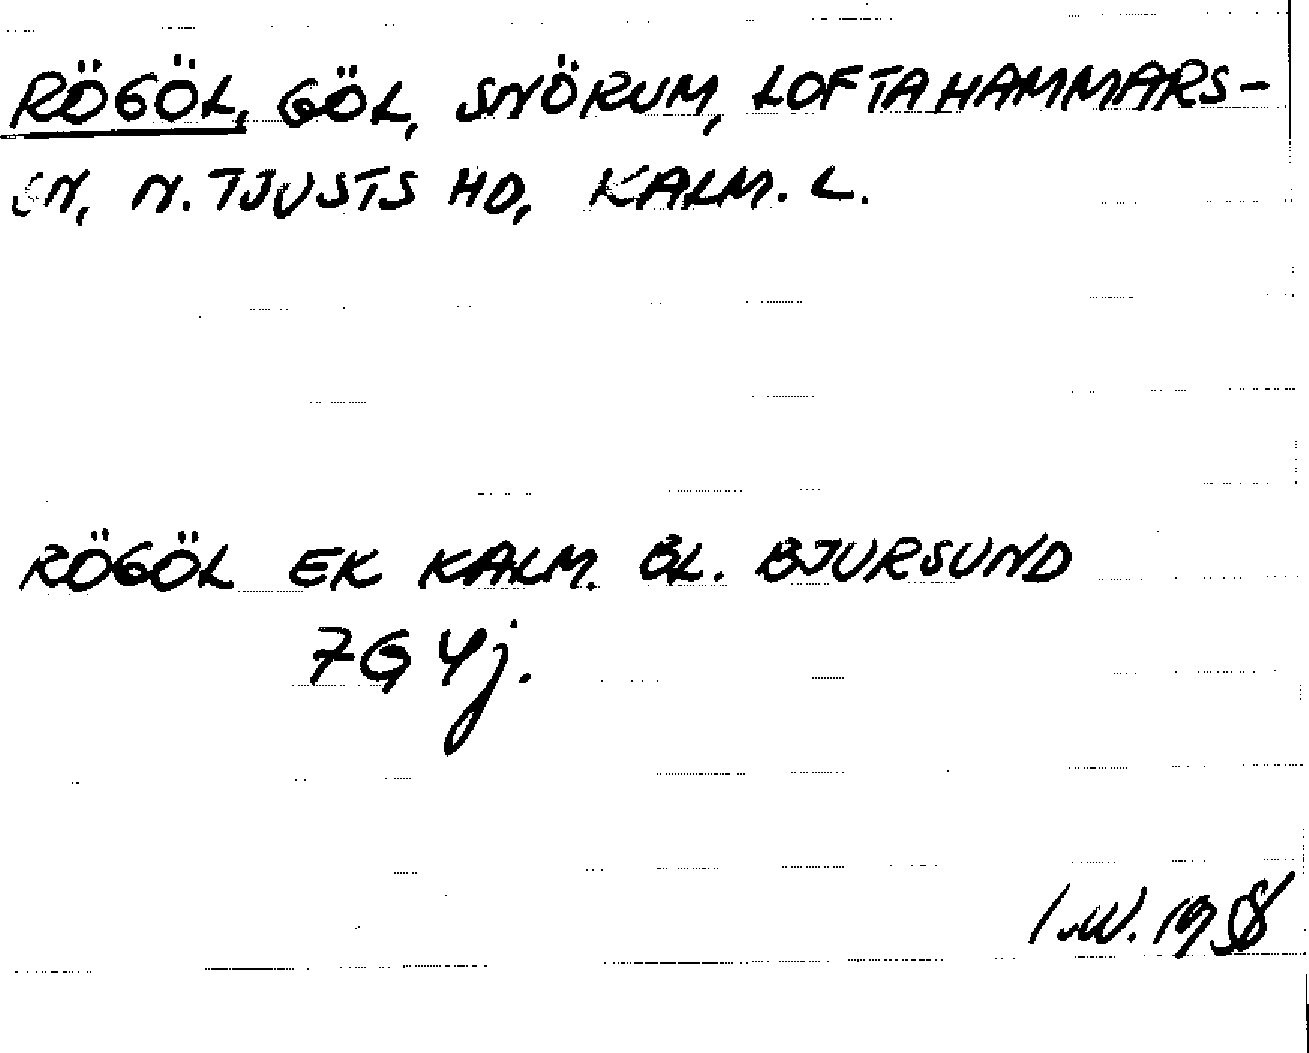 RÖGÖL, GÖL, SNÖRUM, LOFTAHAMMARS-
SN, N. TJUSTS HD, KALM. L.
RÖGÖL EK KALM. BL. BJURSUND
7G 4j.
I.W. 1958